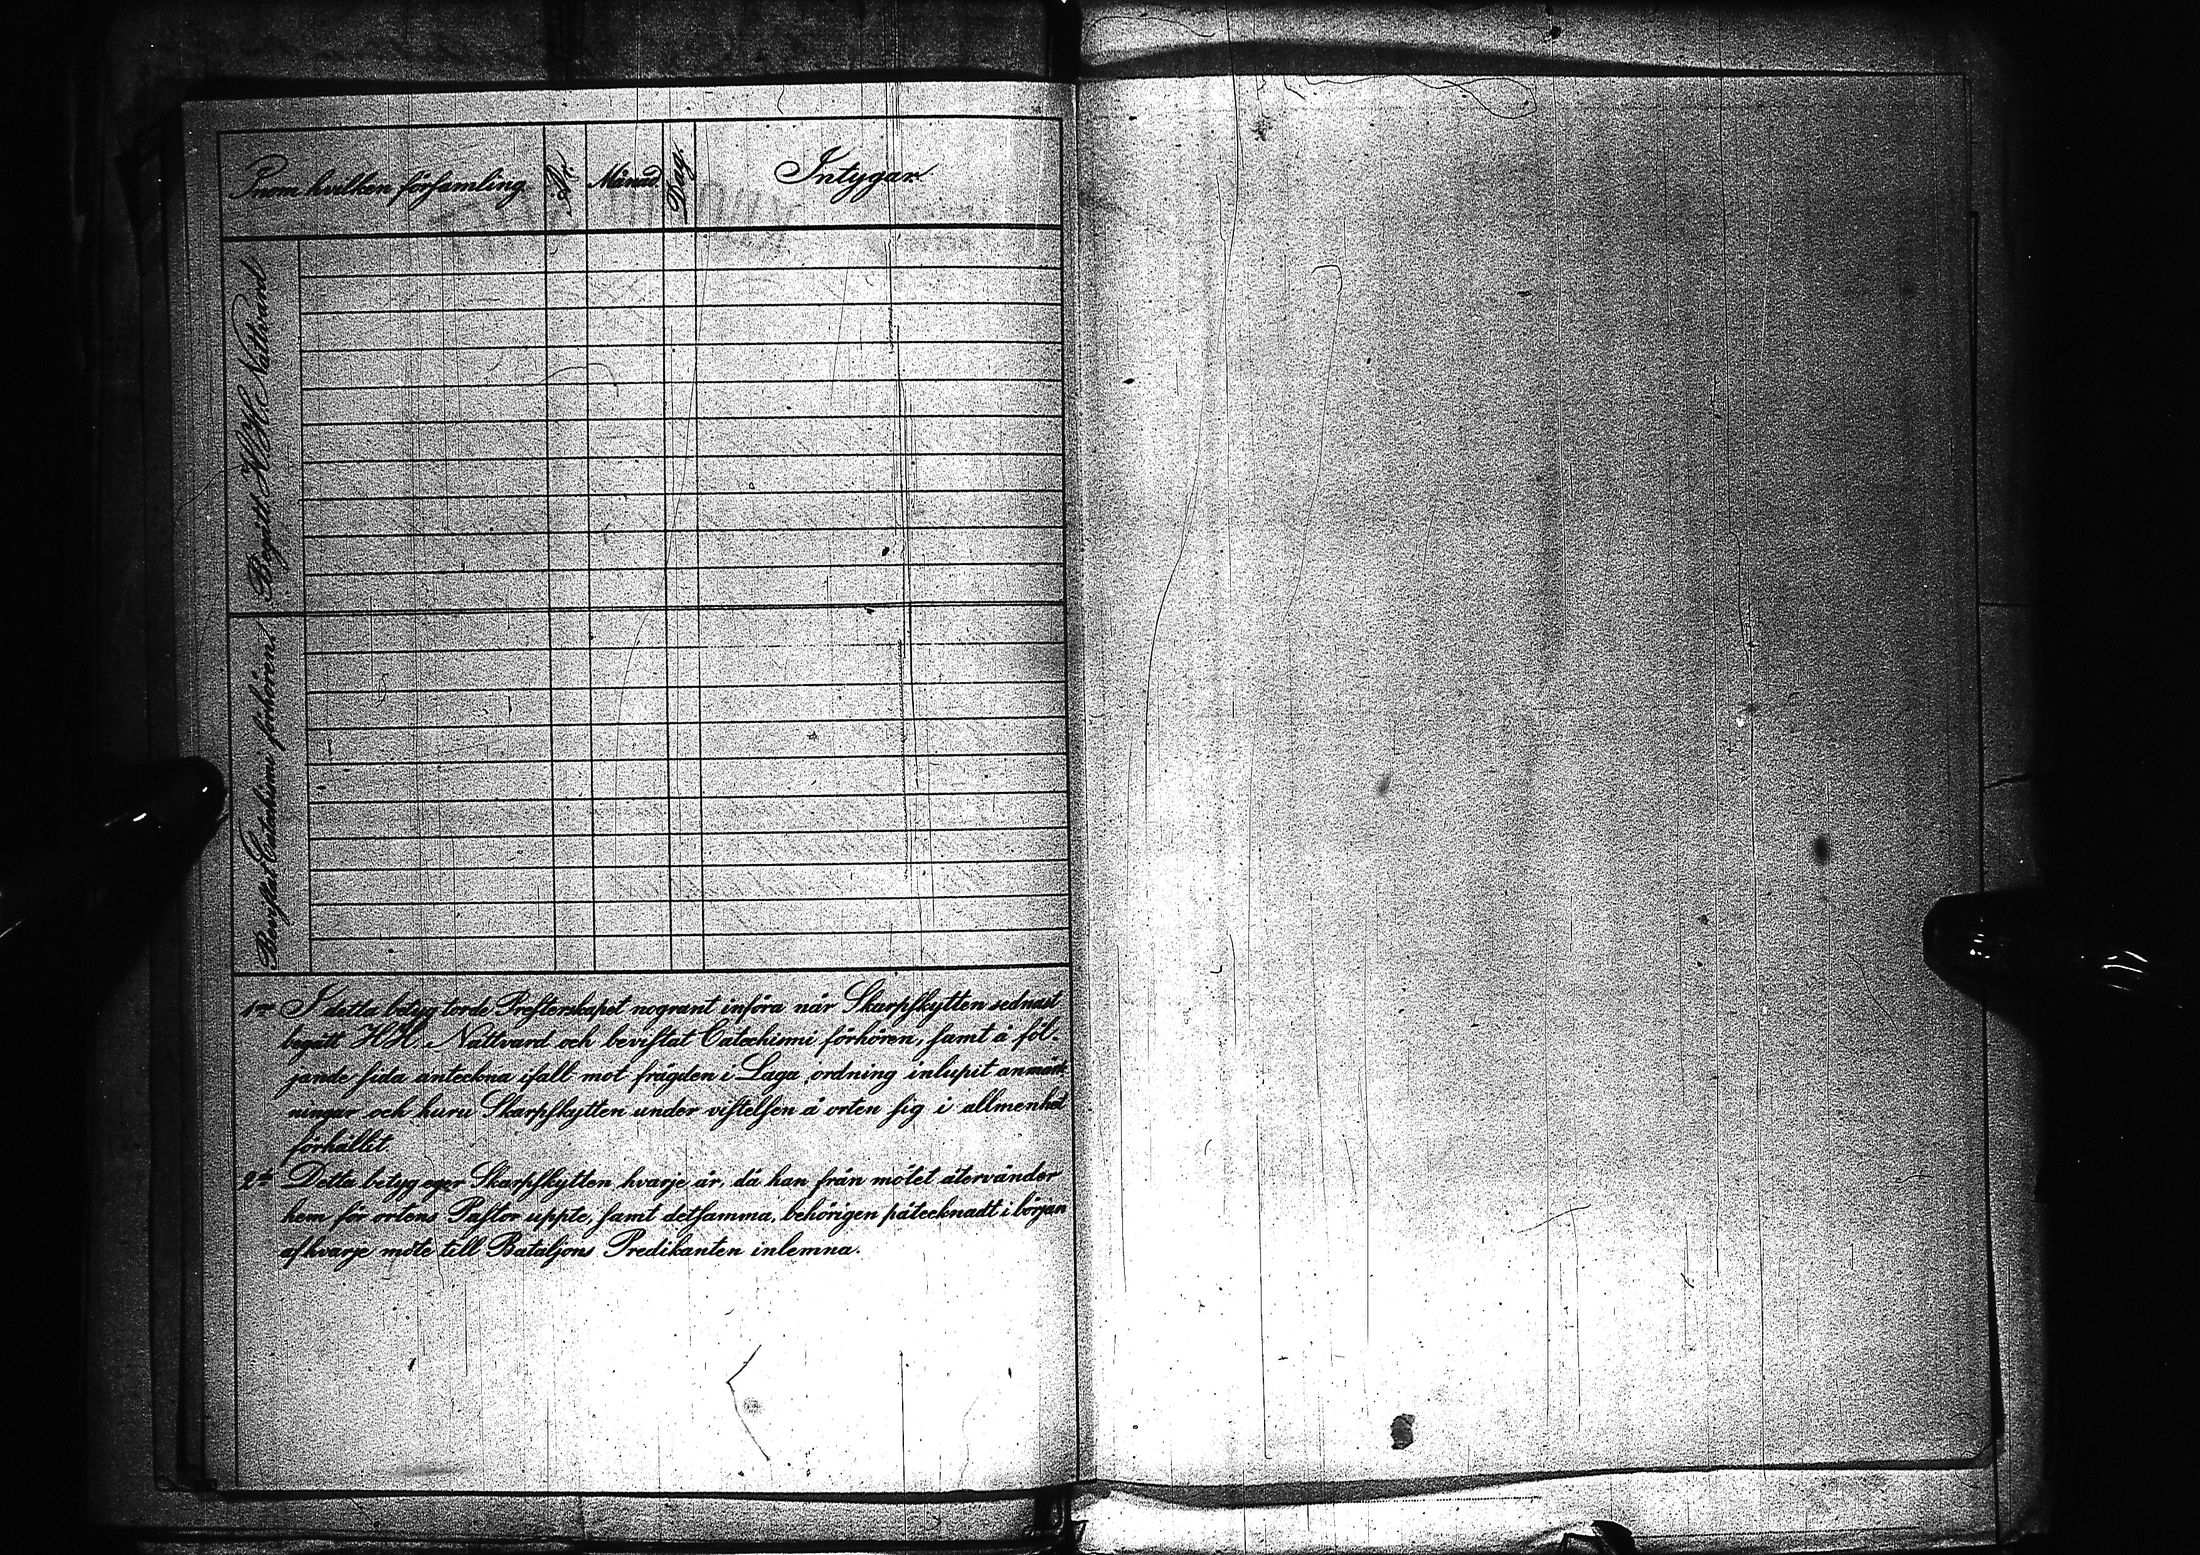 Inom hvilken församling
År.
Månad.
Dag.
Intygar.
Begått H.H. Nattvard
Bevistat Catechismi förhören.
1mo I detta betyg torde Presterskapet nogrant införa når Skarpskytten sednast
begått H.H. Nattvard och bevistat Catechismi förhören, samt å föl-
jande sida anteckna ifall mot frägden i Laga ordning inlupit anmärk
ningar och huru Skarpskytten under vistelsen å orten sig i allmenhet
förhållit
2do Detta betyg eger Skarpskytten hvarje år, då han från mötet återvänder
hem för ortens Pastor uppte, samt detsamma, behörigen påtecknadt i början
af hvarje möte till Bataljons Predikanten inlemna.